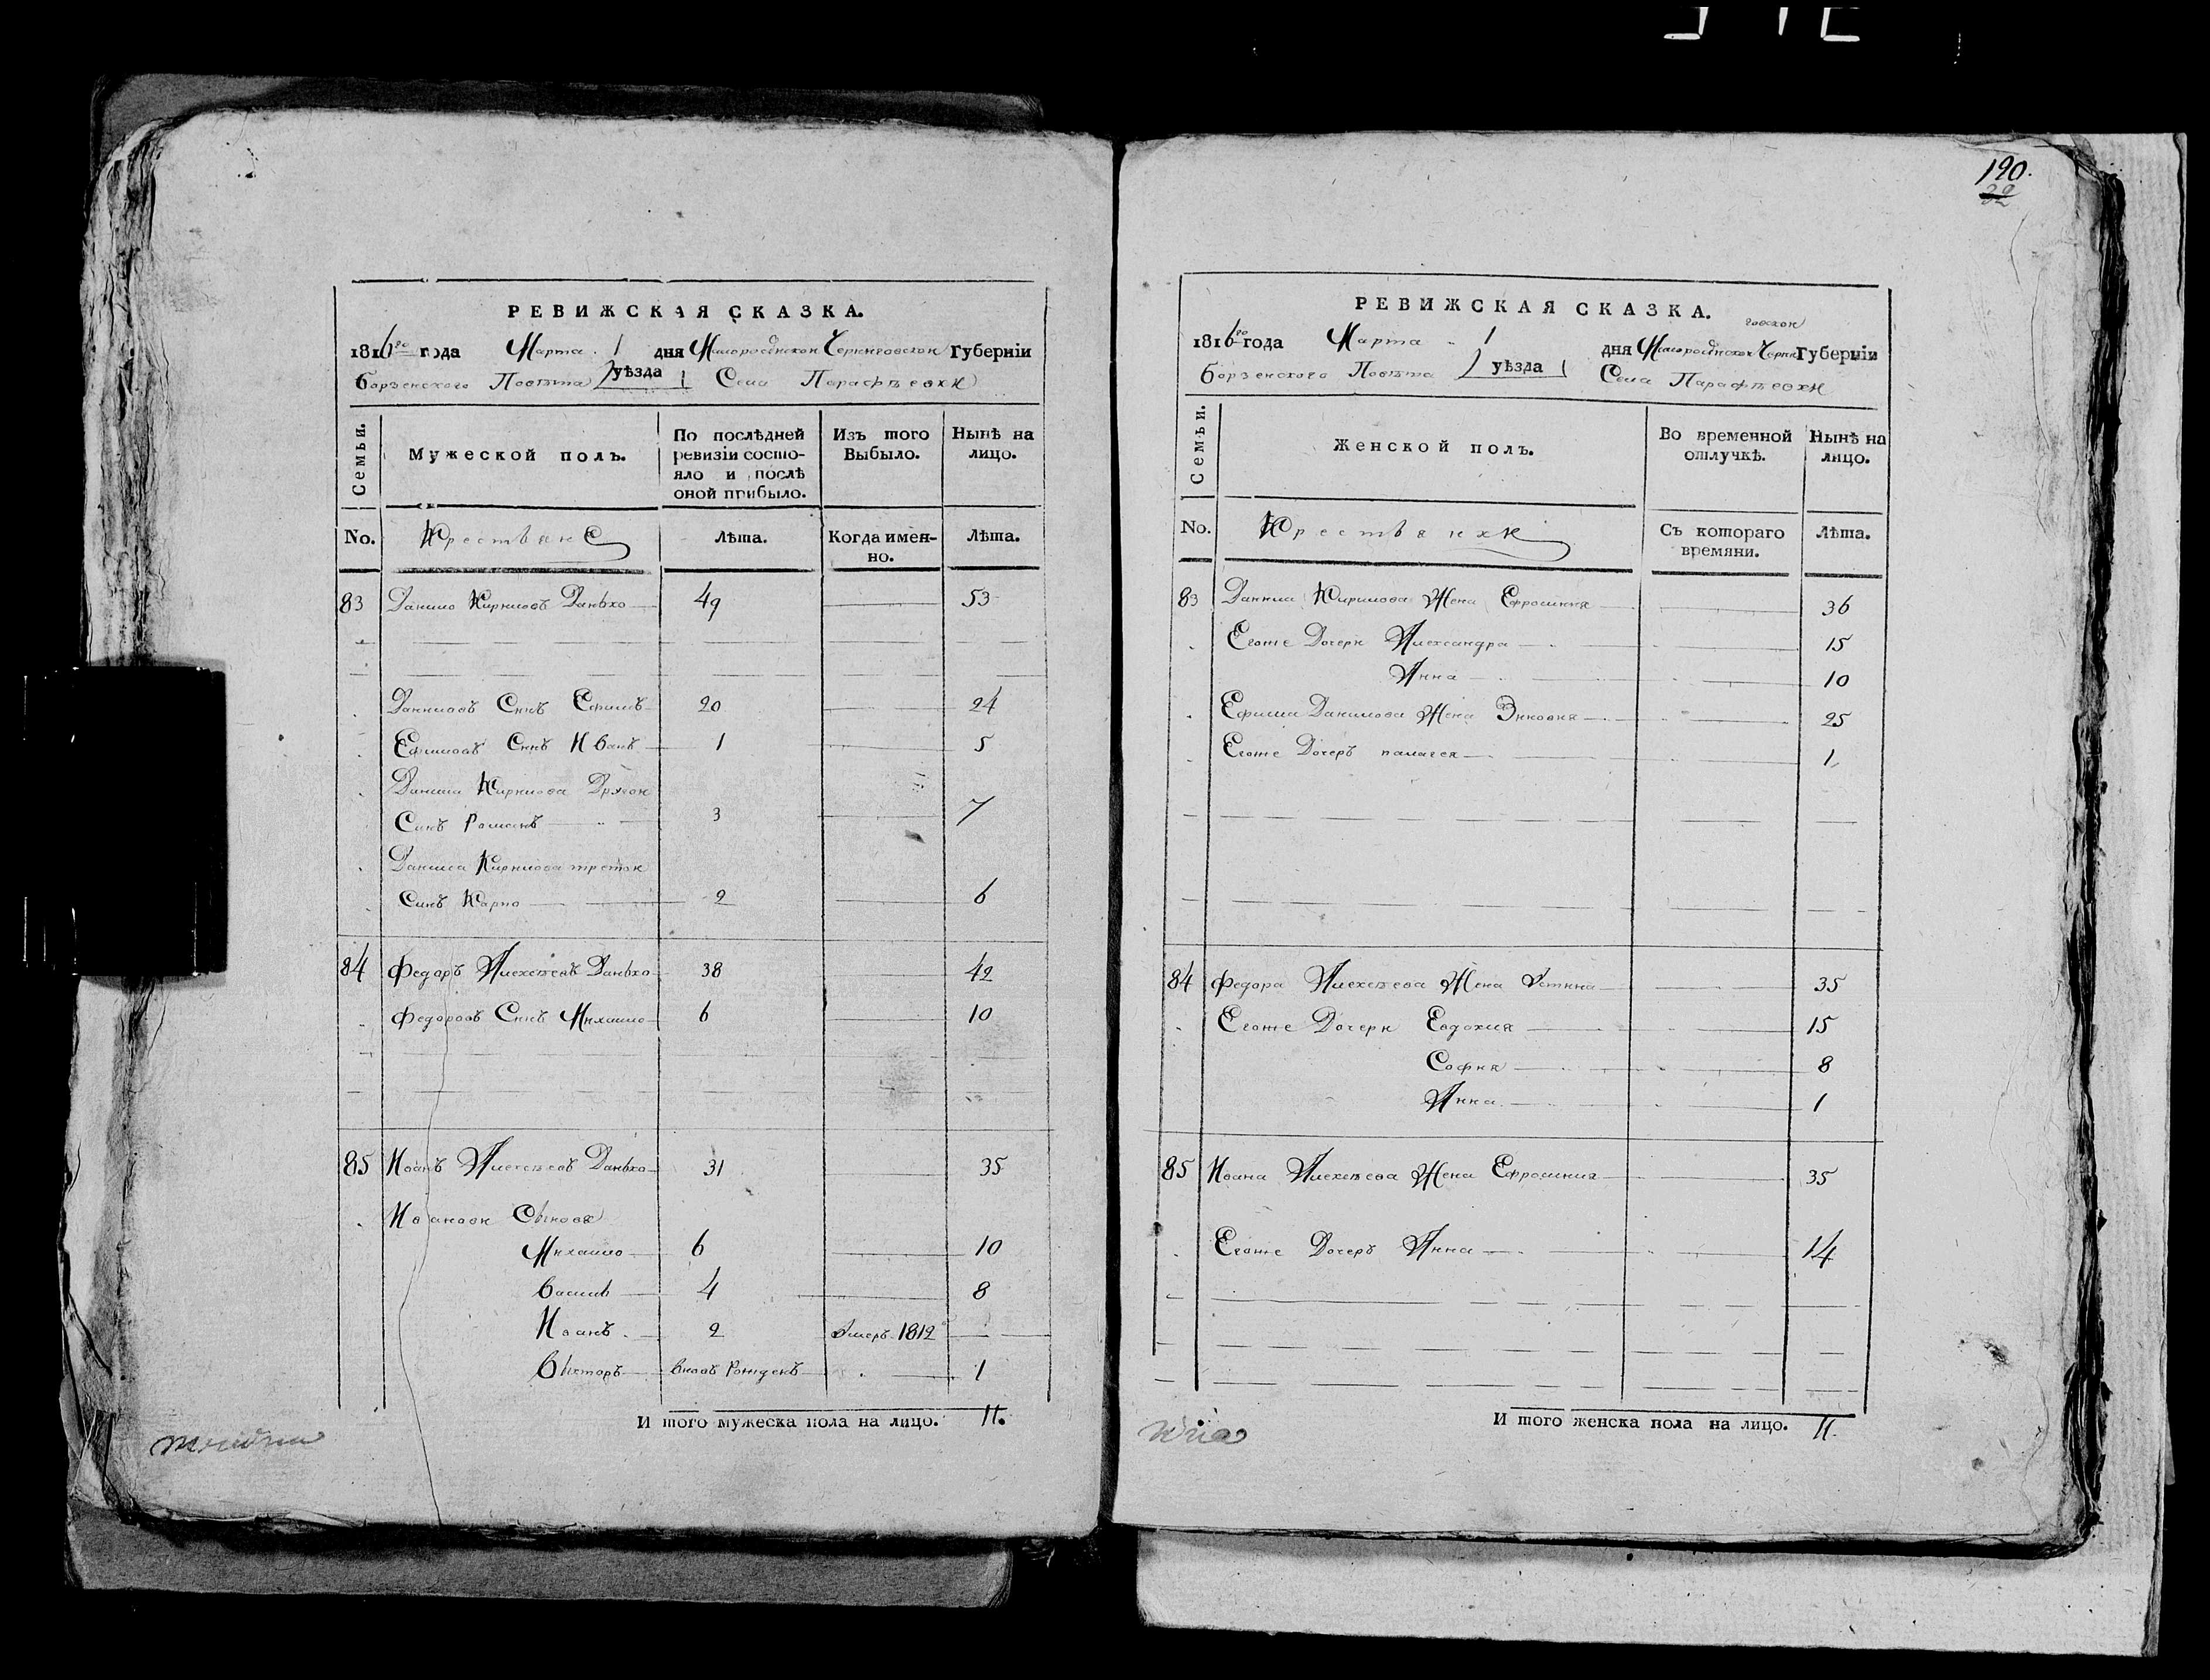 РЕВИЖСКАЯ СКАЗКА.
1816го года Марта 1 дня Малоросійской Черниговской Губерніи
Борзенского Повѣта уѣзда Села Парафѣевки
Семьи.
Мужеской полъ.
По послѣдней ревизіи состо-
яло и послѣ
оной прибыло.
Изъ того
Выбыло.
Нынѣ на
лицо.
No.
Крестьяне
Лѣта.
Когда имен-
но.
Лѣта.
83 Данило Кириловъ Данько 49 53
Даниловъ Синъ Ефимъ 20 24
Ефимовъ Синъ Иванъ 1 5
Данила Кирилова Другой
Синъ Романъ 3 7
Данила Кирилова третой
Синъ Карпо 2 6
84 Федоръ Алексѣевъ Данько 38 42
Федоровъ Синъ Михайло 6 10
85 Иванъ Алексѣевъ Данько 31 35
Ивановы Сыновя
Михайло 6 10
Василь 4 8
Иванъ 2 Умеръ 1812
Викторъ вновъ Рожденъ 1
И того мужеска пола на лицо. 11.
190.
32
РЕВИЖСКАЯ СКАЗКА.
1816го года Марта 1 дня Малоросійской Черниговской Губерніи
Борзенского Повѣта уѣзда Села Парафѣевки
Семьи.
Женской полъ.
Во временной
отлучкѣ.
Нынѣ на
лицо.
No.
Крестьянки
Съ котораго
времяни.
Лѣта.
83 Данила Кирилова Жена Ефросиния 36
Егоже Дочери Александра 15
Анна 10
Ефима Данилова Жена Зиновия 25
Егоже Дочеръ палагея 1
84 Федора Алексѣева Жена Устина 35
Егоже Дочери Евдокия 15
София 8
Анна 1
85 Ивана Алексѣева Жена Ефросиния 35
Егоже Дочеръ Анна 14
И того женска пола на лицо. 11.